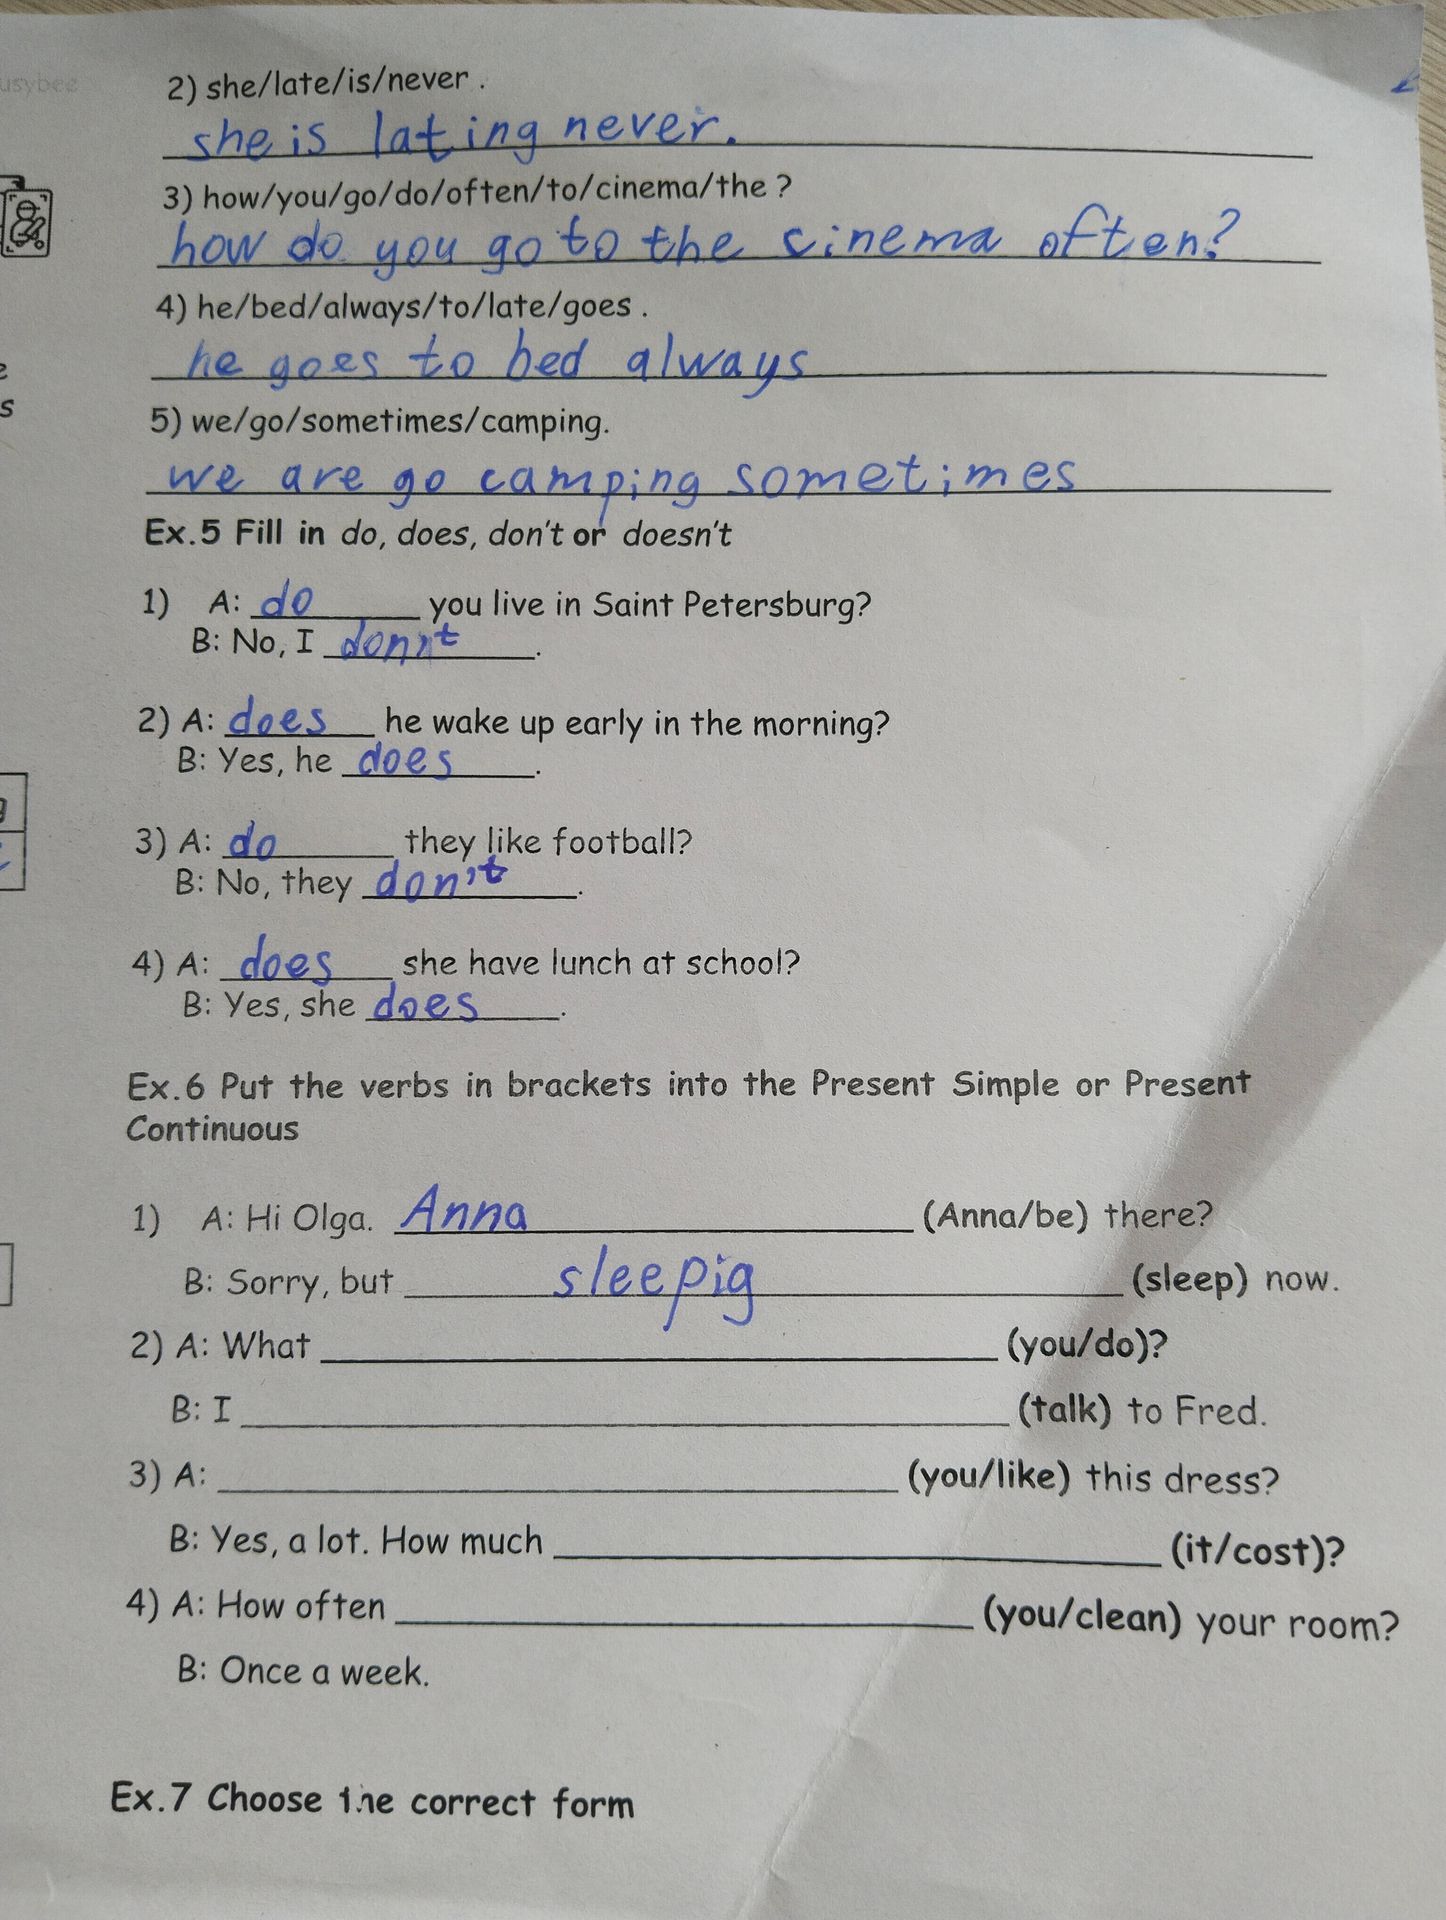 usybee
2) she/late/is/never .
she is lating never.
3) how/you/go/do/often/to/cinema/the ?
how do you go to the cinema often?
4) he/bed/always/to/late/goes .
he goes to bed always
5) we/go/sometimes/camping.
we are go camping sometimes
Ex.5 Fill in do, does, don't or doesn't
1) A: do you live in Saint Petersburg?
B: No, I don't.
2) A: does he wake up early in the morning?
B: Yes, he does.
3) A: do they like football?
B: No, they don't.
4) A: does she have lunch at school?
B: Yes, she does.
Ex.6 Put the verbs in brackets into the Present Simple or Present
Continuous
1) A: Hi Olga. Anna (Anna/be) there?
B: Sorry, but sleepig (sleep) now.
2) A: What (you/do)?
B: I (talk) to Fred.
3) A: (you/like) this dress?
B: Yes, a lot. How much (it/cost)?
4) A: How often (you/clean) your room?
B: Once a week.
Ex.7 Choose the correct form